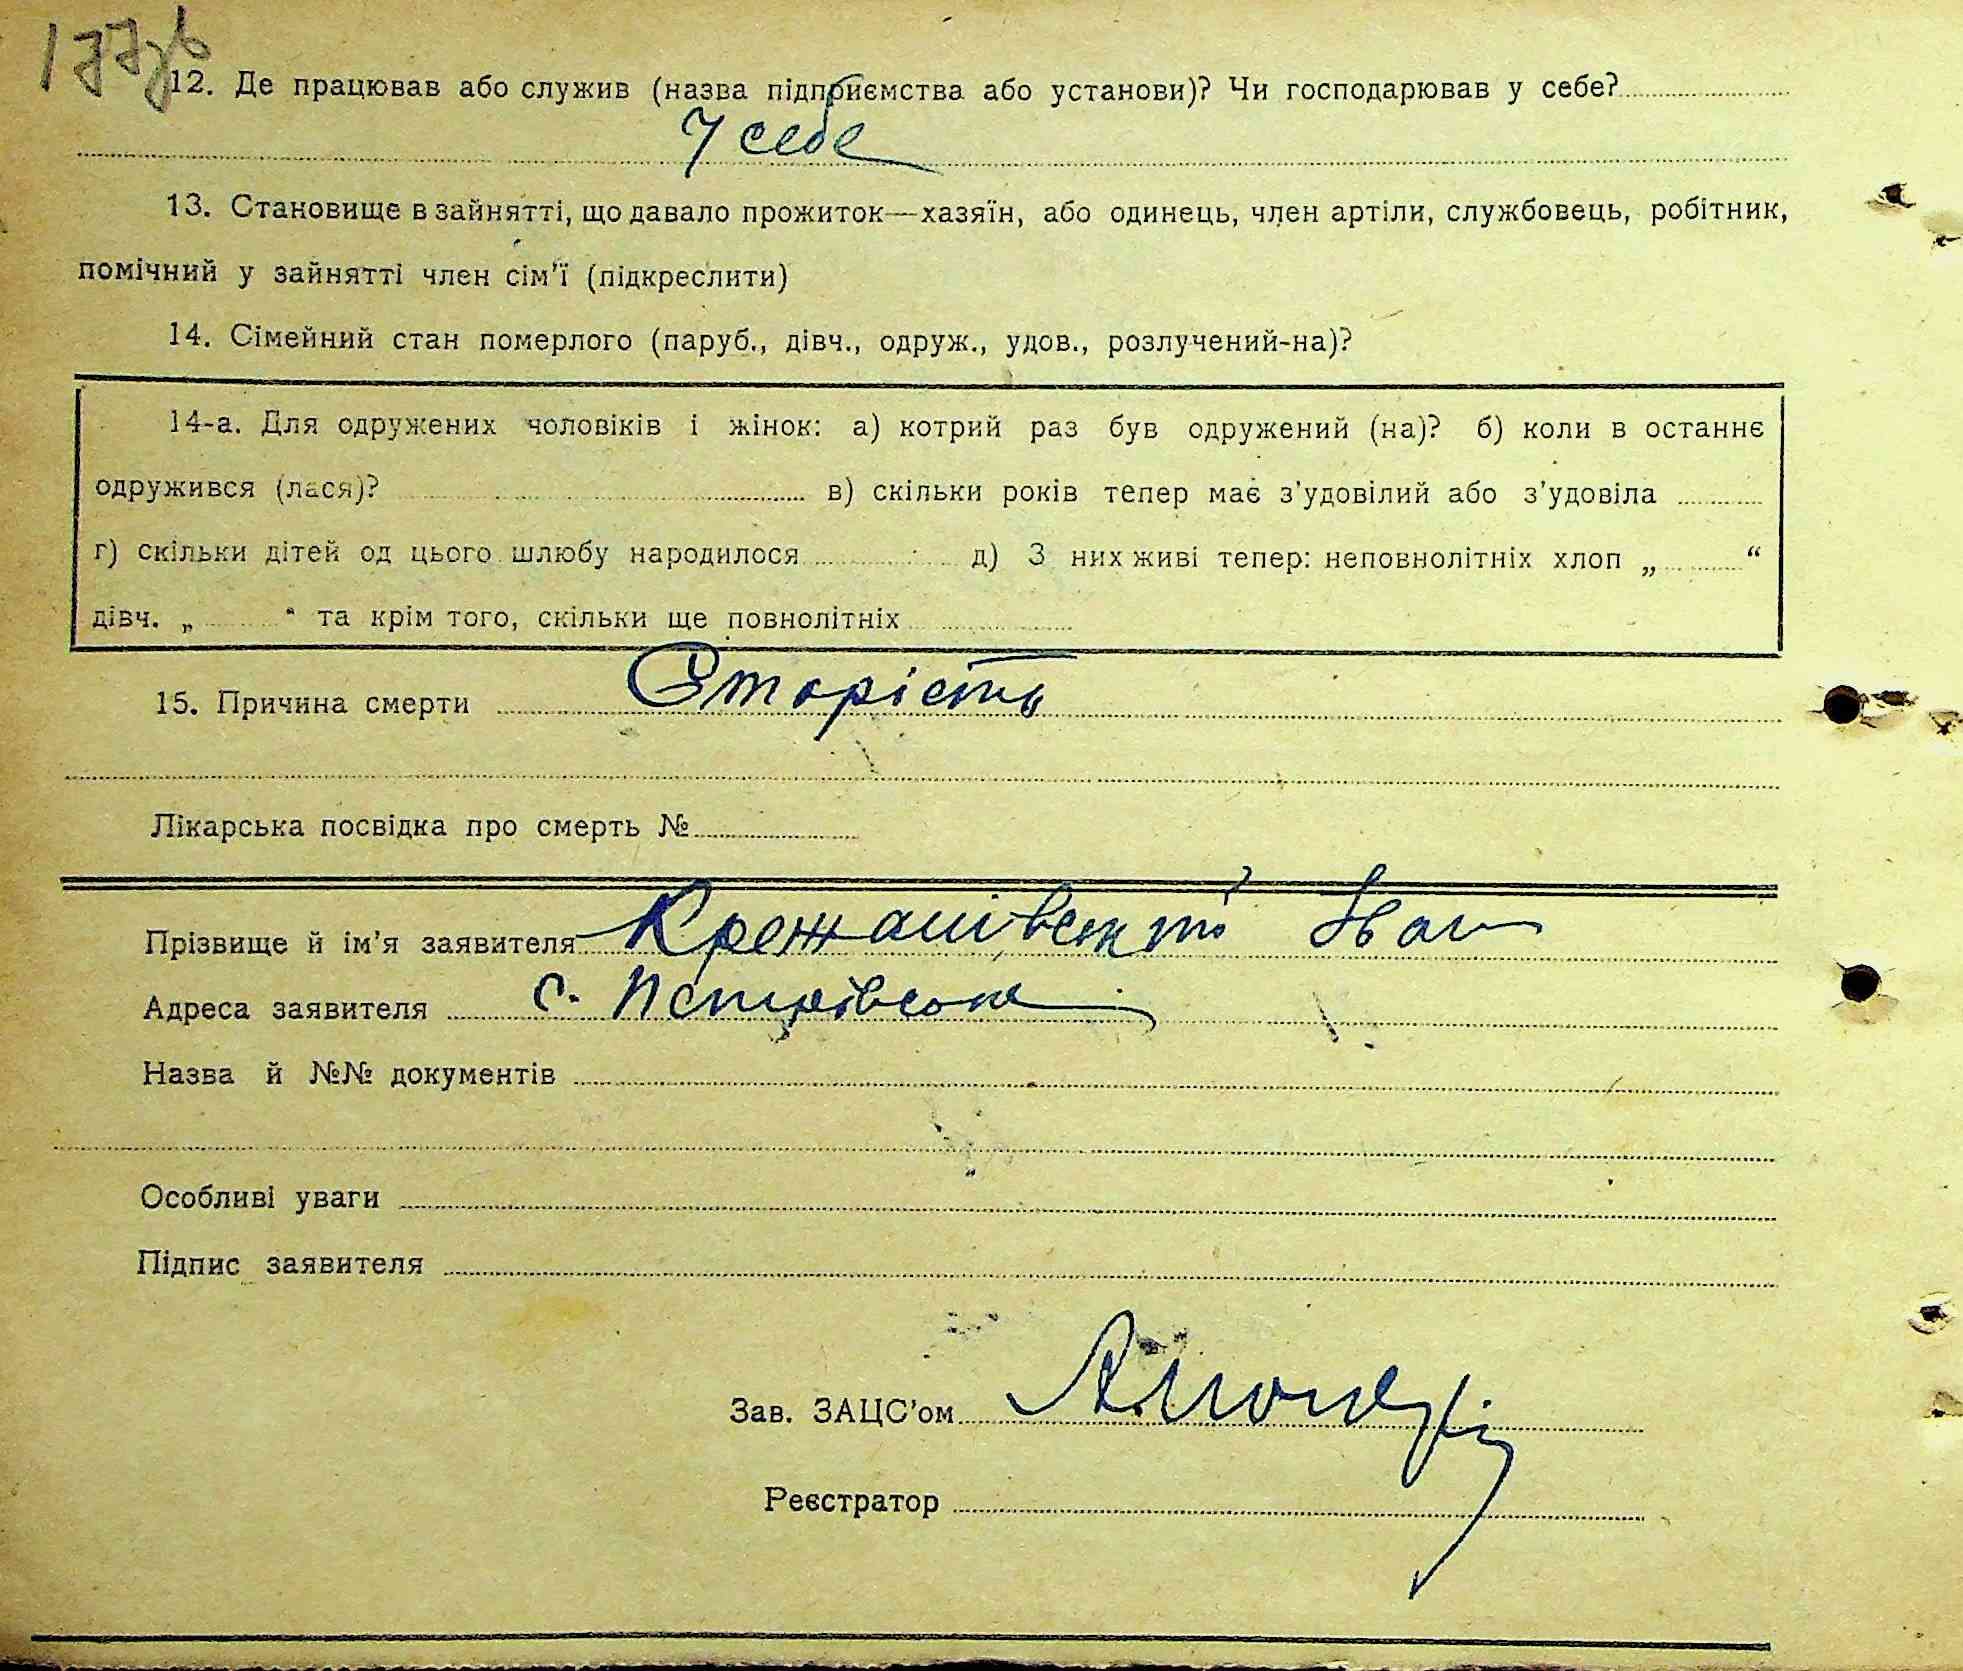 177зв
12. Де працював або служив (назва підприємства або установи)? Чи господарював у себе?
У себе
13. Становище в зайнятті, що давало прожиток—хазяїн, або одинець, член артіли, службовець, робітник,
помічний у зайнятті член сім'ї (підкреслити)
14. Сімейний стан померлого (паруб., дівч., одруж., удов., розлучений-на)?
14-а. Для одружених чоловіків і жінок: а) котрий раз був одружений (на)? б) коли в останнє
одружився (лася)? в) скільки років тепер має з'удовілий або з'удовіла
г) скільки дітей од цього шлюбу народилося д) З них живі тепер: неповнолітніх хлоп „ “
дівч. „ “ та крім того, скільки ще повнолітніх
15. Причина смерти Старість
Лікарська посвідка про смерть №
Прізвище й ім'я заявителя Іван
Адреса заявителя с.
Назва й №№ документів
Особливі уваги
Підпис заявителя
Зав. ЗАЦС'ом
Реєстратор